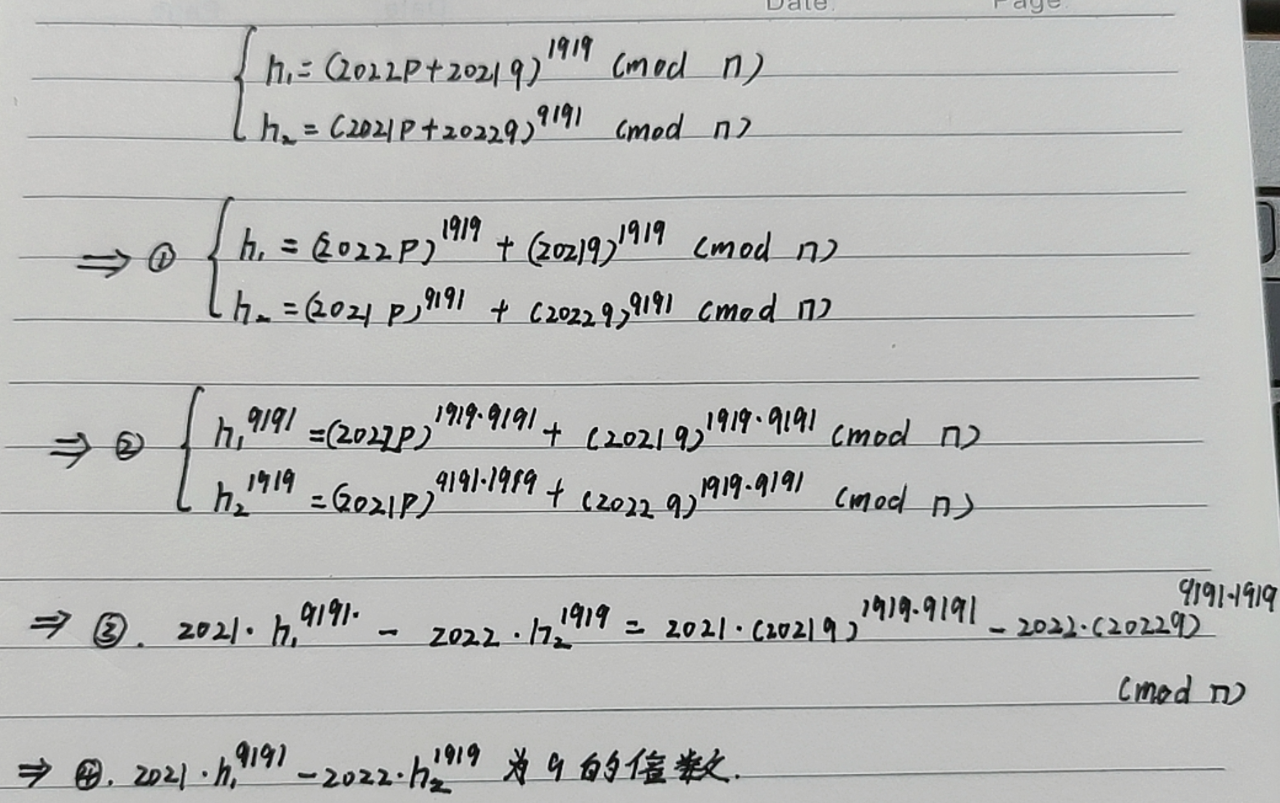 Date Page
h₁ = (2022P+2021q)^1919 (mod n)
h₂ = (2021P+2022q)^9191 (mod n)
⇒ ① h₁ = (2022P)^1919 + (2021q)^1919 (mod n)
h₂ = (2021P)^9191 + (2022q)^9191 (mod n)
⇒ ② h₁^9191 = (2022P)^1919·9191 + (2021q)^1919·9191 (mod n)
h₂^1919 = (2021P)^9191·1919 + (2022q)^1919·9191 (mod n)
⇒ ③. 2021·h₁^9191· - 2022·h₂^1919 = 2021·(2021q)^1919·9191 - 2022·(2022q)^9191·1919
(mod n)
⇒ ④. 2021·h₁^9191 - 2022·h₂^1919 为 q 的倍数.